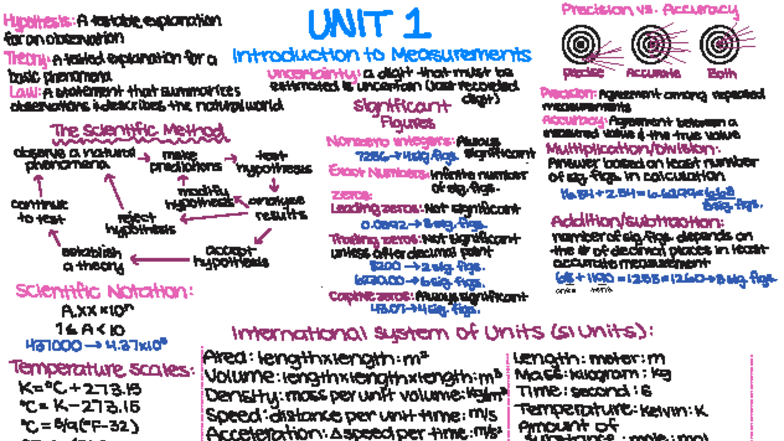 UNIT 1
Introduction to Measurements
Hypothesis: A testable explanation
for an observation
Theory: A tested explanation for a
basic phenomena
Law: A statement that summarizes
observations & describes the natural world
The Scientific Method
observe a natural phenomena
make predictions
test hypothesis
analyze results
modify hypothesis
reject hypothesis
accept hypothesis
establish a theory
continue to test
Scientific Notation:
A.XX × 10ⁿ
1 ≤ A < 10
Temperature Scales:
K = °C + 273.15
°C = K - 273.15
°C = 5/9(°F-32)
uncertainty: a digit that must be
estimated is uncertain (last recorded
digit)
Significant
Figures
Nonzero integers: Always
significant
7256 → 4 sig. figs.
Exact Numbers: Infinite number
of sig. figs.
Zeros:
Leading zeros: Not significant
0.0892 → 3 sig. figs.
Trailing zeros: Not significant
unless after decimal point
→ 2 sig. figs.
→ 6 sig. figs.
Captive zeros: Always significant
→ 4 sig. figs.
Precision vs. Accuracy
Precise
Accurate
Both
Precision: Agreement among repeated
measurements
Accuracy: Agreement between a
measured value & the true value
Multiplication/Division:
Answer based on least number
of sig. figs in calculation
3 sig. figs.
Addition/Subtraction:
number of sig. figs depends on
the # of decimal places in least
accurate measurement
ones
tens
International System of Units (SI Units):
Area: length×length: m²
Volume: length×length×length: m³
Density: mass per unit volume: kg/m³
Speed: distance per unit time: m/s
Acceleration: Δspeed per time: m/s²
Length: meter: m
Mass: kilogram: kg
Time: second: s
Temperature: Kelvin: K
Amount of
substance: mole: mol